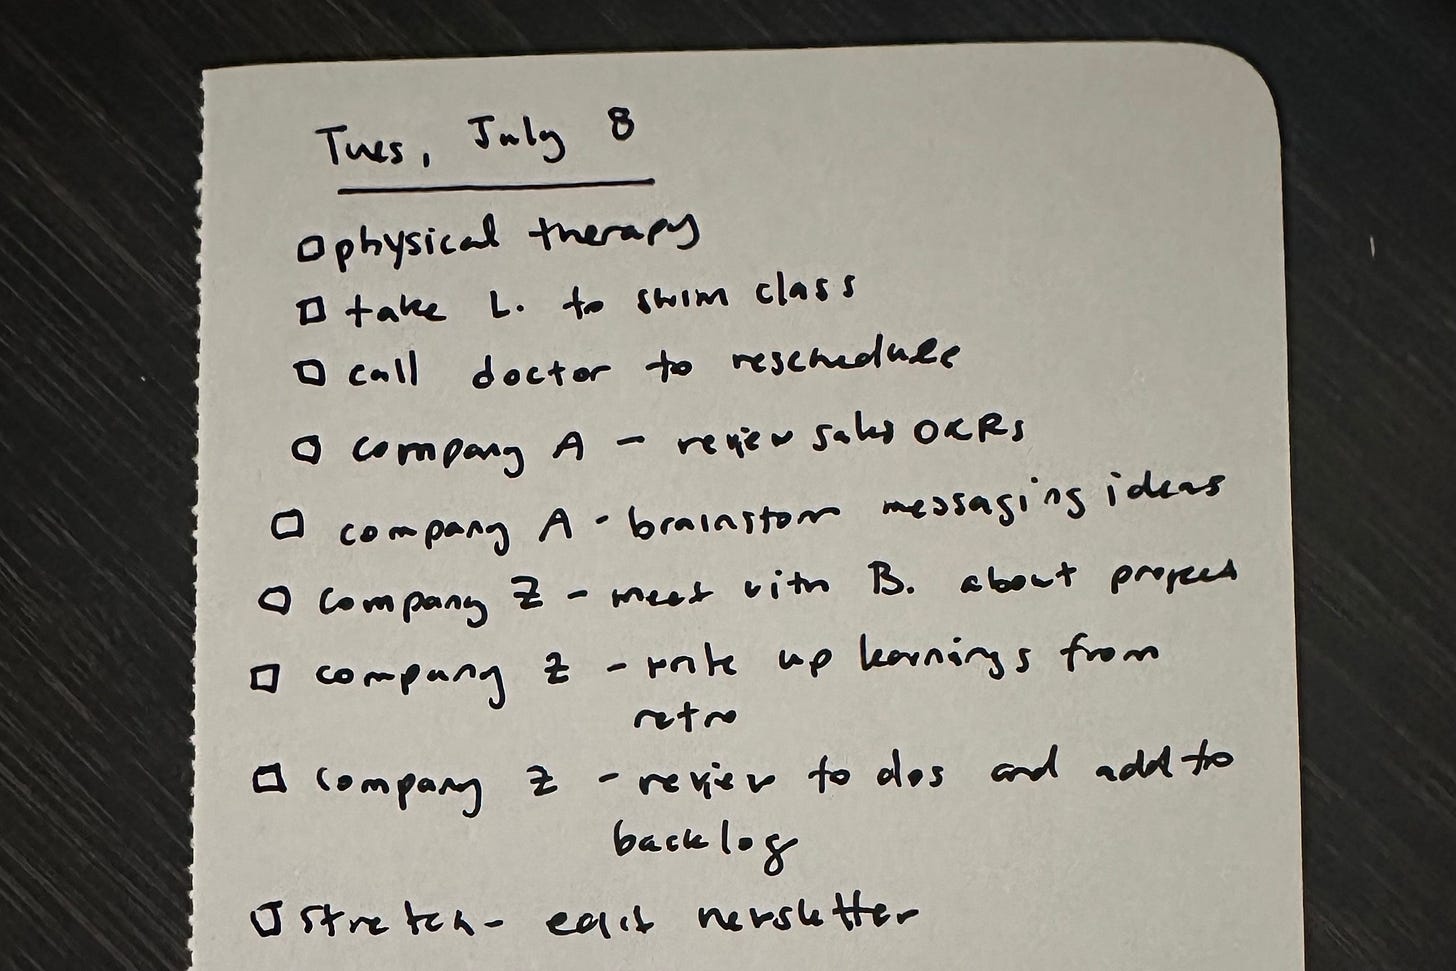 Tues, July 8
physical therapy
take L. to swim class
call doctor to reschedule
company A - review sales OKRs
company A - brainstorm messaging ideas
company Z - meet with B. about project
company Z - write up learnings from
retro
company Z - review to dos and add to
backlog
stretch - edit newsletter